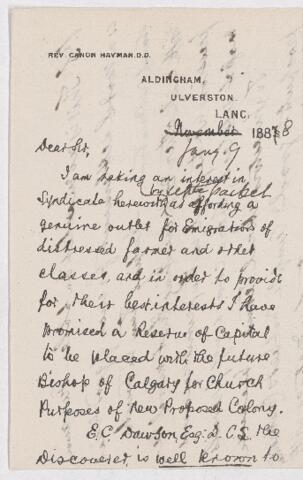 REV. CANON HAYMAN. D.D.
ALDINGHAM,
ULVERSTON.
LANC.
November 1887 8
Jany 9
Dear Sir,
I am taking an interest in
by septe packet
Syndicate herewith as affording a
genuine outlet for Emigration of
distressed farmer and other
classes, and in order to provide
for their best interests I have
promised a Reserve of Capital
to be placed with the future
Bishop of Calgary for Church
Purposes of New Proposed Colony.
E. C. Dawson, Esq: C.E. the
Discoverer is well known to